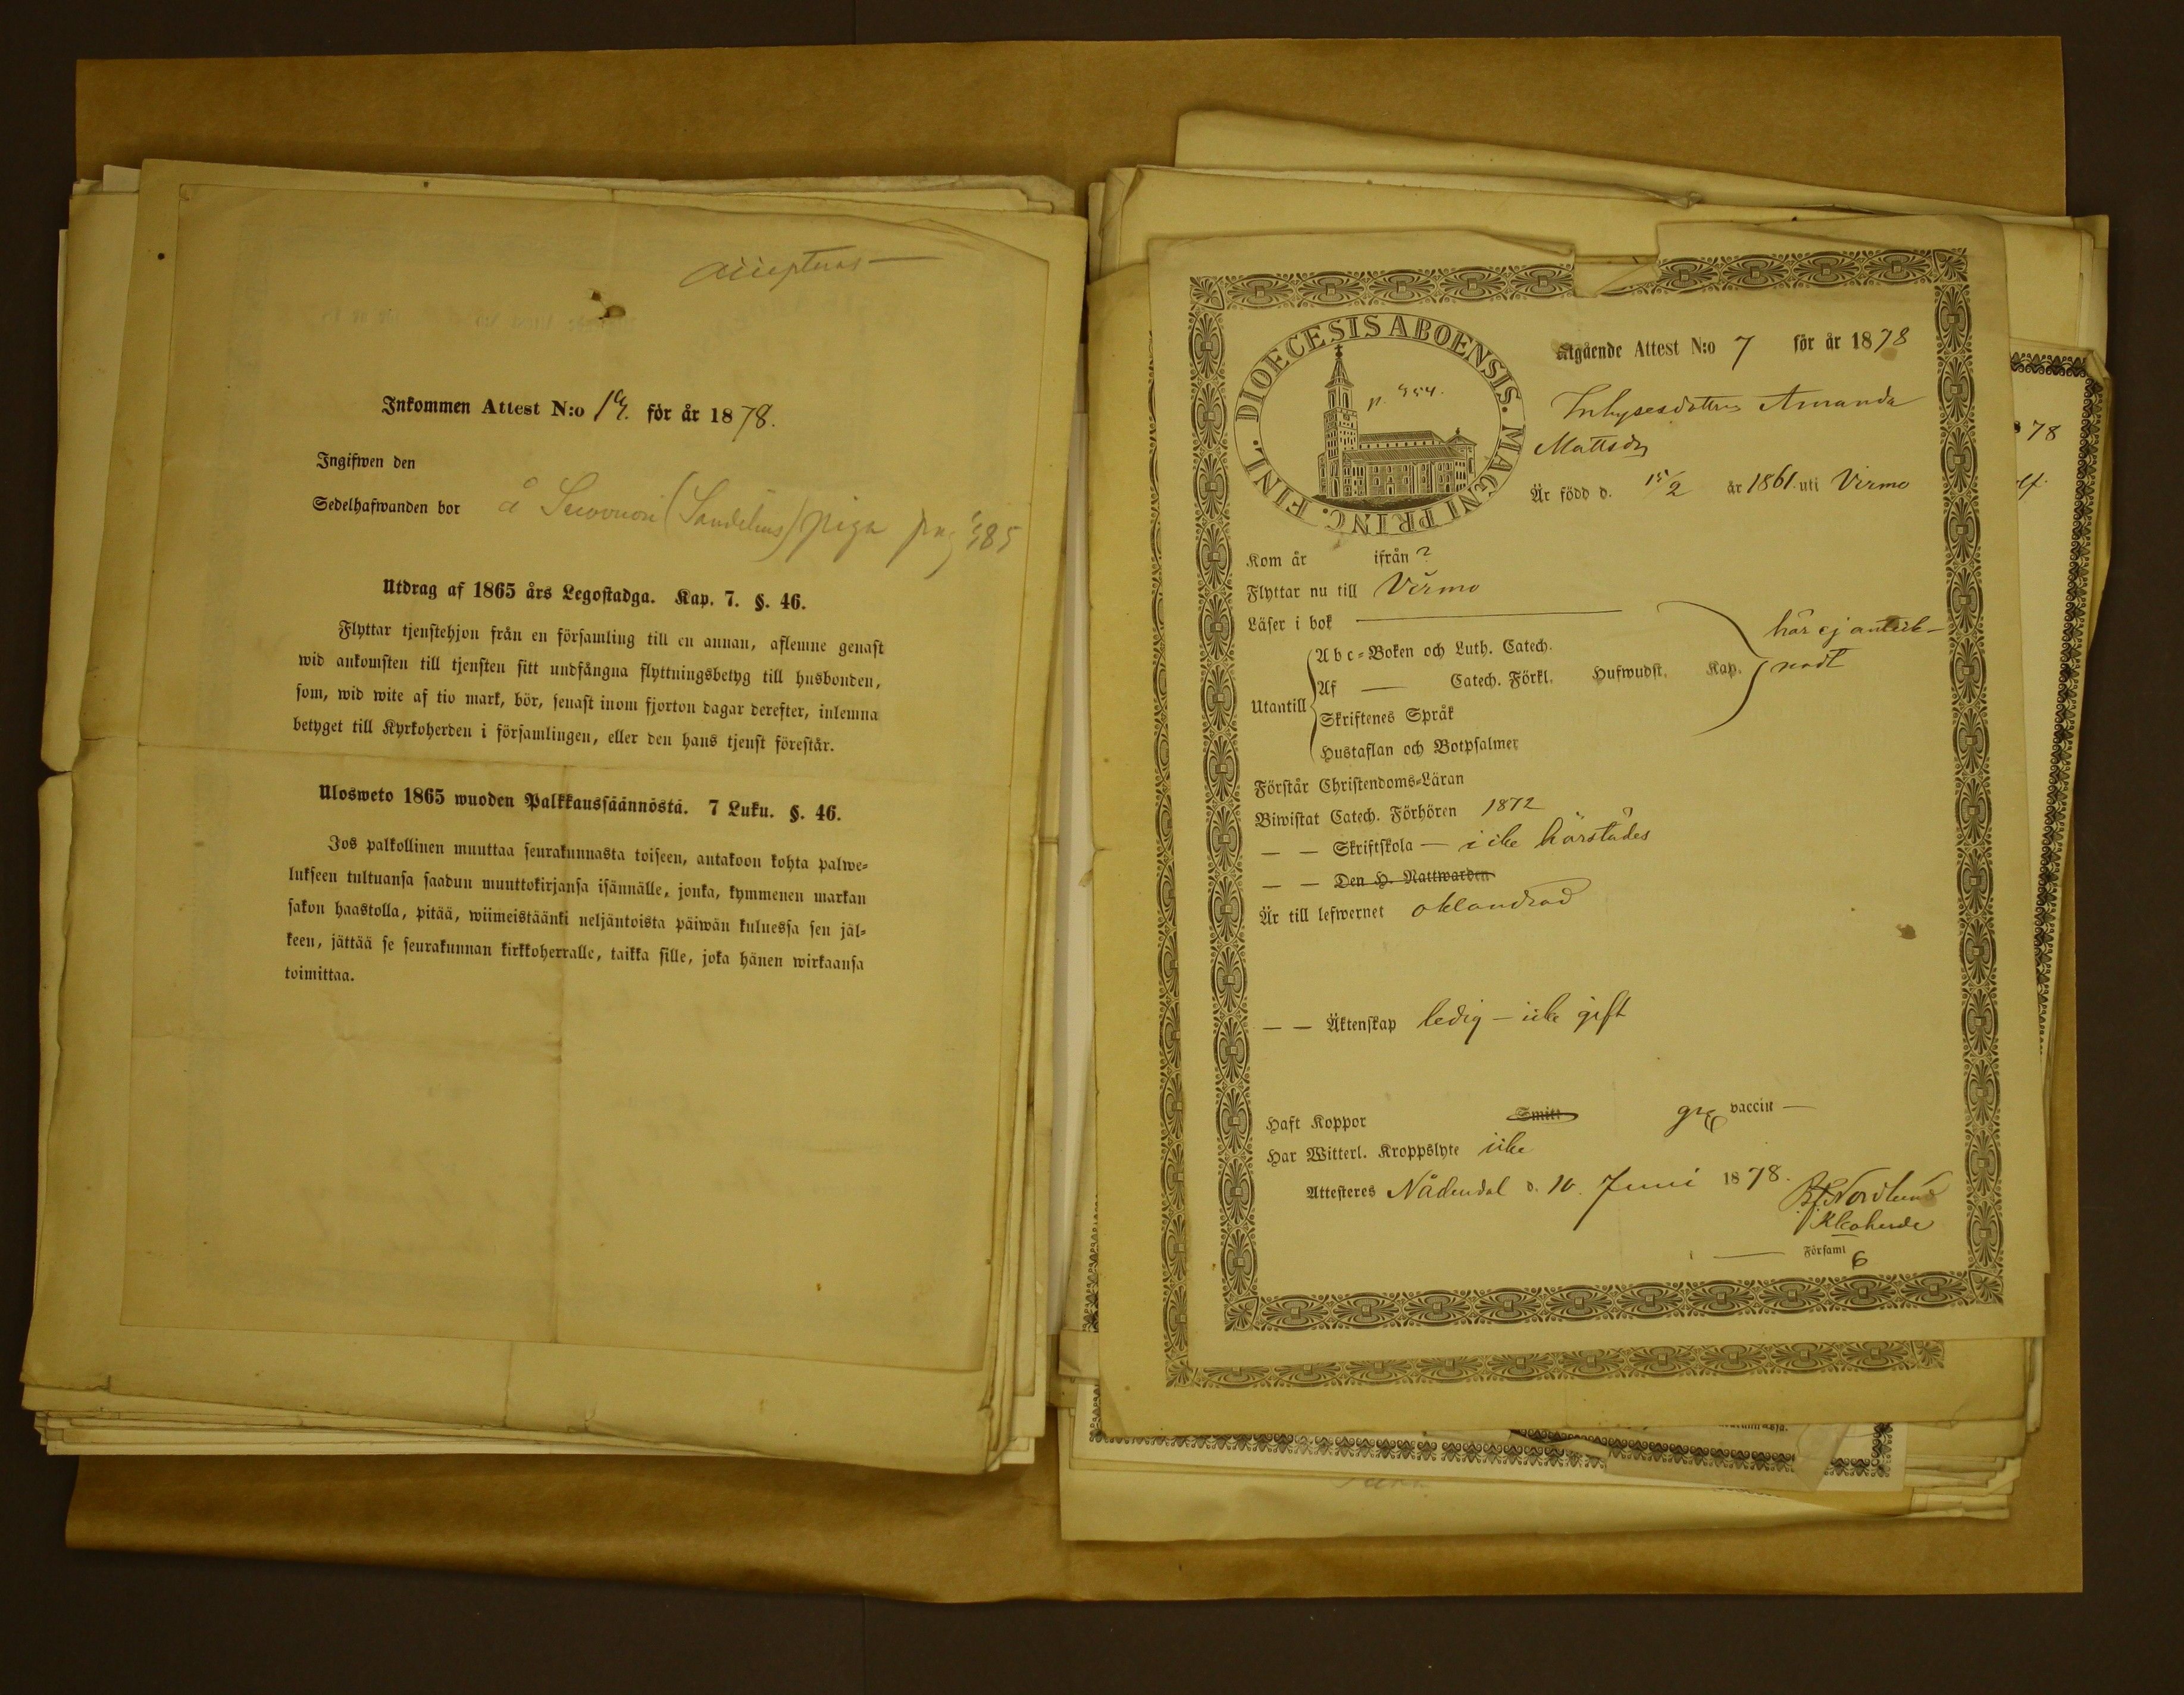 Inkommen Attest N:o 19. för år 1878.
Ingifwen den
Sedelhafwanden bor å (Sandelius) piga pag 385
Utdrag af 1865 års Legostadga. Kap. 7. §. 46.
Flyttar tjenstehjon från en församling till en annan, aflemne genast
wid ankomsten till tjensten sitt undfångna flyttningsbetyg till husbonden,
som, wid wite af tio mark, bör, senast inom fjorton dagar derefter, inlemna
betyget till Kyrkoherden i församlingen, eller den hans tjenst förestår.
Ulosweto 1865 wuoden Palkkaussäännöstä. 7 Luku. §. 46.
Jos palkollinen muuttaa seurakunnasta toiseen, antakoon kohta palwe=
lukseen tultuansa saadun muuttokirjansa isännälle, jonka, kymmenen markan
sakon haastolla, pitää, wiimeistäänki neljäntoista päiwän kuluessa sen jäl=
keen, jättää se seurakunnan kirkkoherralle, taikka sille, joka hänen wirkaansa
toimittaa.
DIOECESIS ABOENSIS. MAGNI PRINC. FINL.
p. 954.
Utgående Attest N:o 7 för år 1878
Inhysesdottern Amanda
Mattsdr
Är född d. 15/2 år 1861 uti Virmo
Kom år ifrån ?
Flyttar nu till Virmo
Läser i bok
Utantill
Abc=Boken och Luth. Catech.
Af — Catech. Förkl. Hufwudst. Kap.
Skriftenes Språk
Hustaflan och Botpsalmer
här ej anteck-
nadt
Förstår Christendoms=Läran
Biwistat Catech. Förhören 1872
— — Skriftskola — icke härstädes
— — Den H. Nattwarden
Är till lefwernet oklandrad
— — Äktenskap ledig — icke gift
Haft Koppor Smitt vaccin —
Har Witterl. Kroppslyte icke
Attesteres Nådendal d. 10. Juni 1878.
Nordlund
Kkoherde
i — Församl
6
78